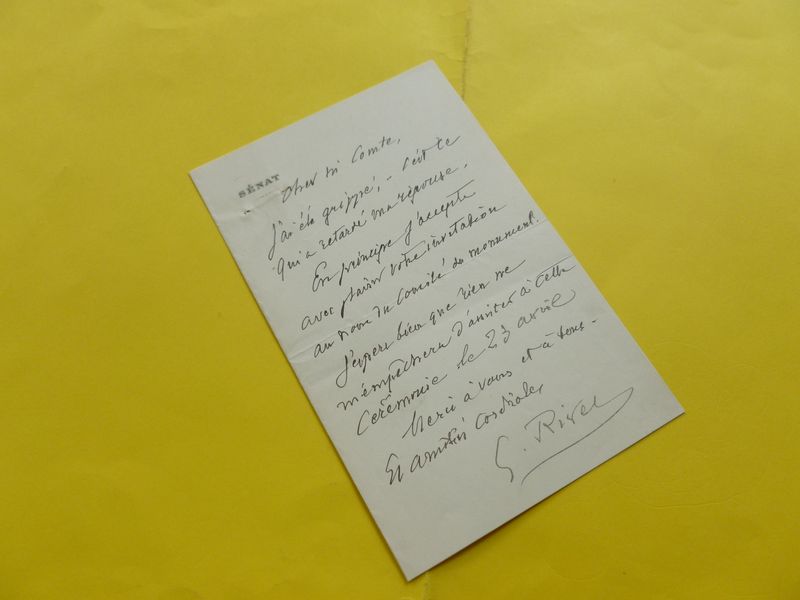 SÉNAT
Cher M. Comte,
J'ai été grippé, – c'est ce
qui a retardé ma réponse.
En principe j'accepte
avec plaisir votre invitation
au nom du Comité du monument.
J'espère bien que rien ne
m'empêchera d'assister à cette
Cérémonie le 23 avril
Merci à vous et à tous –
Et amitiés cordiales,
G. Rivet